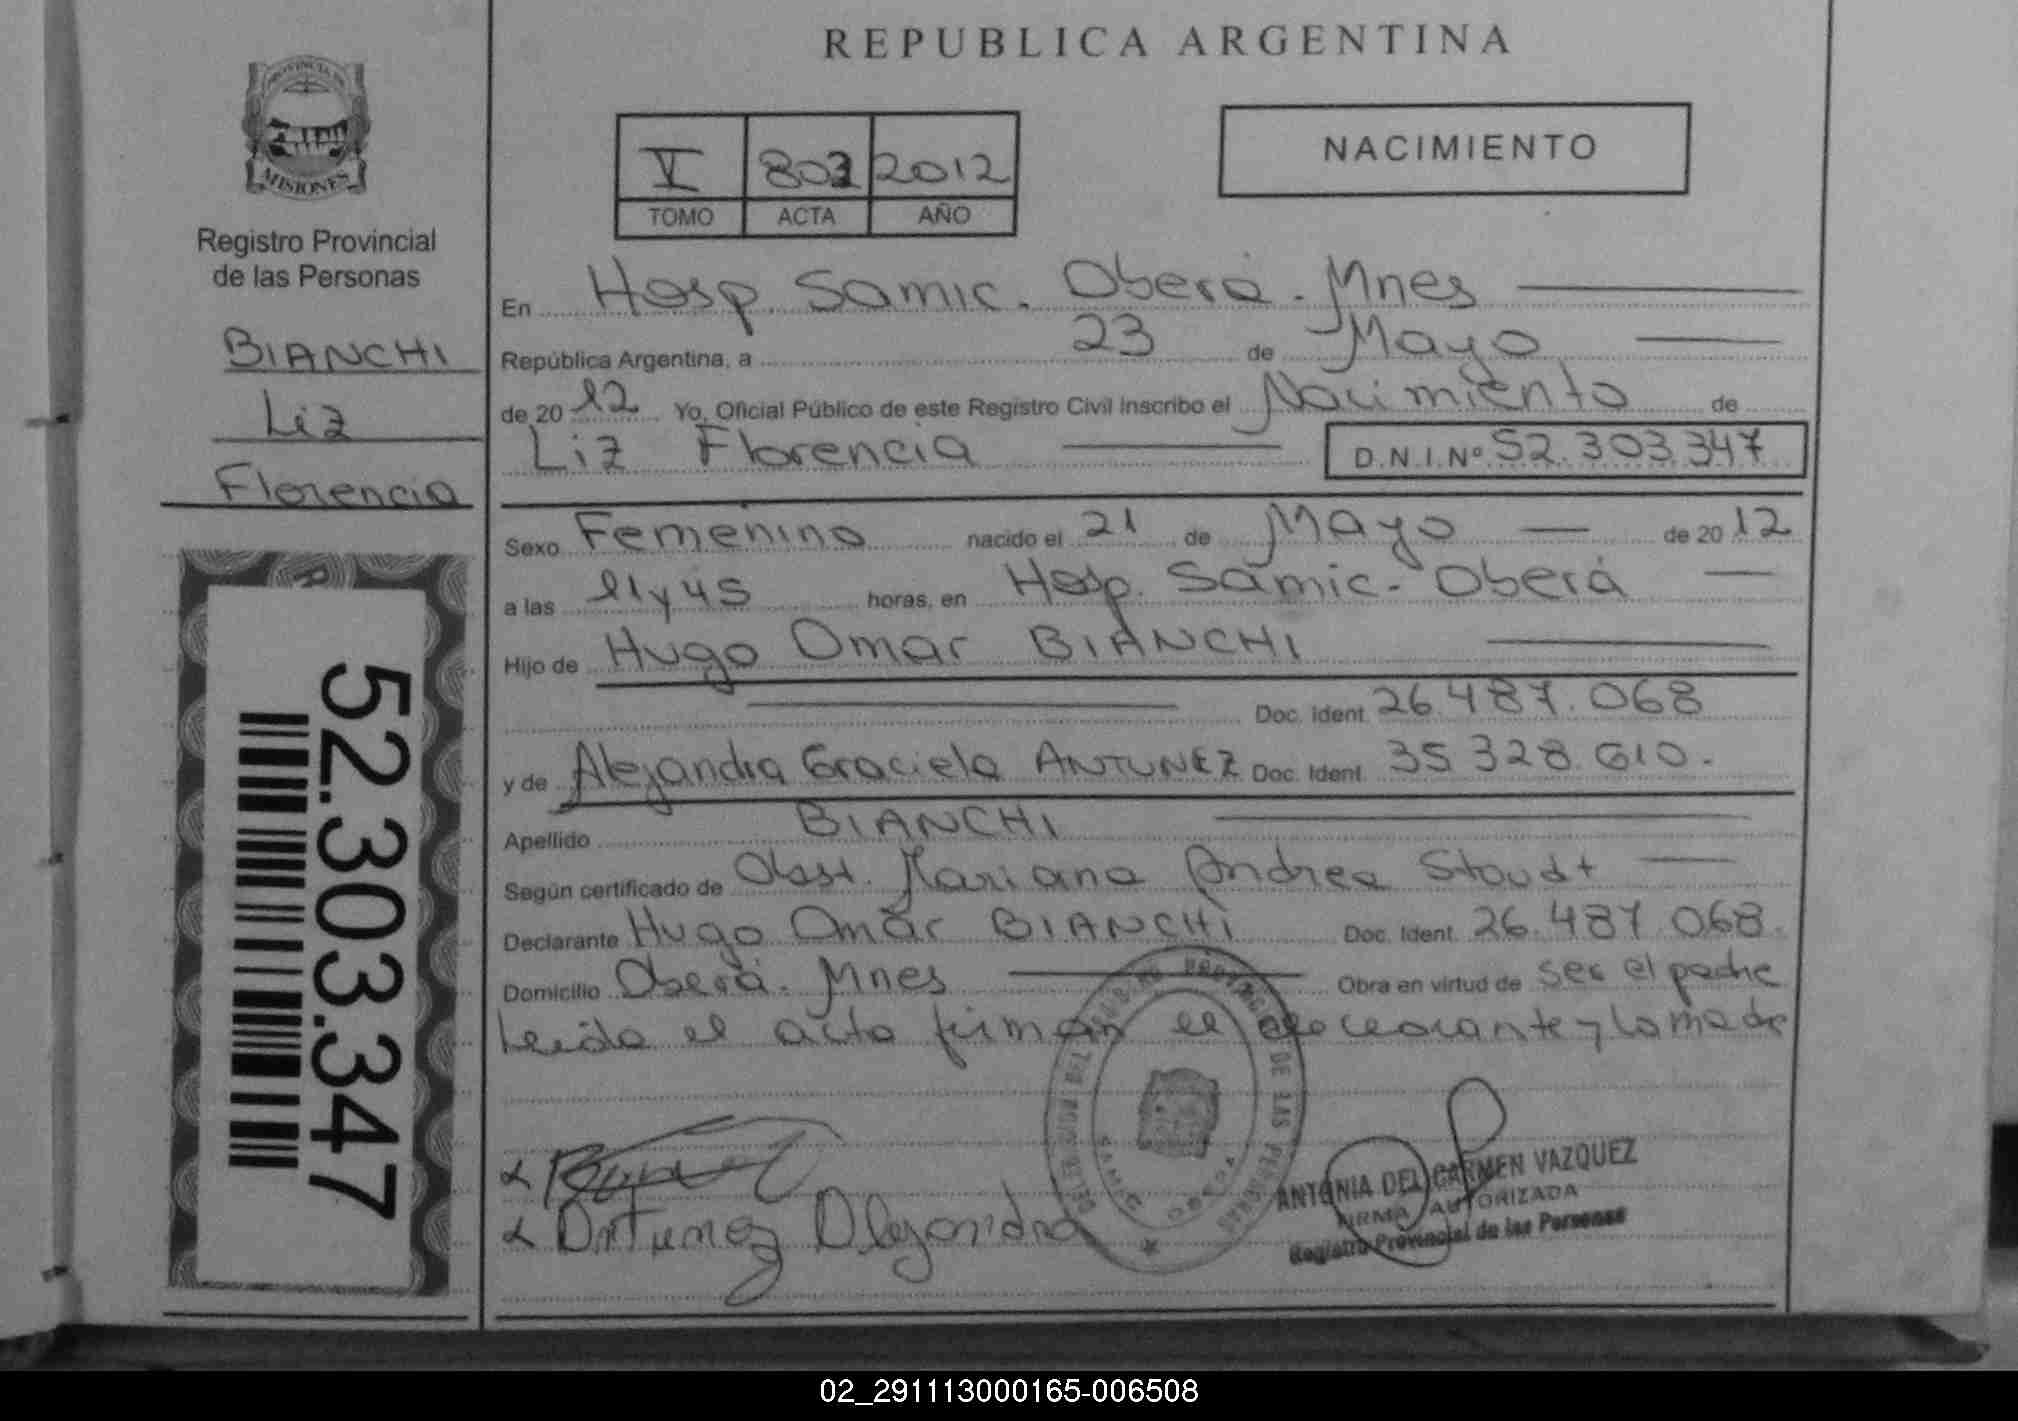 REPUBLICA ARGENTINA
PROVINCIA DE
MISIONES
Registro Provincial
de las Personas
BIANCHI
Liz
Florencia
52.303.347
V 803 2012
TOMO ACTA AÑO
NACIMIENTO
En Hosp. Samic. Oberá - Mnes
República Argentina, a 23 de Mayo
de 2012 Yo, Oficial Público de este Registro Civil Inscribo el Nacimiento de
Liz Florencia D.N.I.Nº 52.303.347
Sexo Femenino nacido el 21 de Mayo de 2012
a las 11 y 45 horas, en Hosp. Samic - Oberá
Hijo de Hugo Omar BIANCHI
Doc. Ident. 26.487.068
y de Alejandra Graciela ANTUNEZ Doc. Ident. 35.328.610.
Apellido BIANCHI
Según certificado de Obst. Mariana Andrea Stoudt
Declarante Hugo Omar BIANCHI Doc. Ident. 26.487.068.
Domicilio Oberá. Mnes Obra en virtud de ser el padre
Leida el acta firman el declarante y la madre
Antunez Alejandra
ANTONIA DEL CARMEN VAZQUEZ
FIRMA AUTORIZADA
Registro Provincial de las Personas
02_291113000165-006508